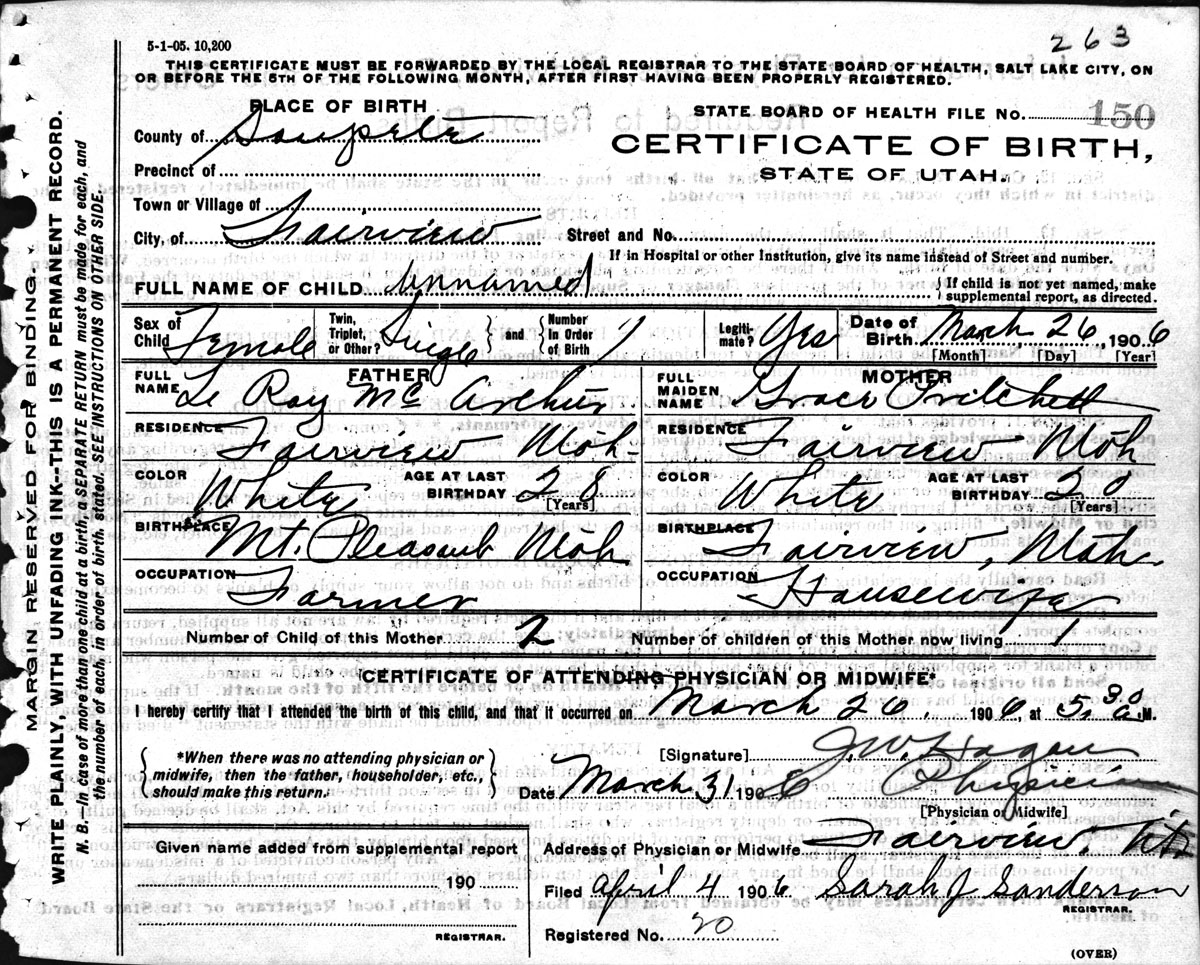 263
5-1-05. 10,200
THIS CERTIFICATE MUST BE FORWARDED BY THE LOCAL REGISTRAR TO THE STATE BOARD OF HEALTH, SALT LAKE CITY, ON
OR BEFORE THE 5TH OF THE FOLLOWING MONTH, AFTER FIRST HAVING BEEN PROPERLY REGISTERED.
PLACE OF BIRTH
STATE BOARD OF HEALTH FILE NO. 150
County of Sanpete
CERTIFICATE OF BIRTH,
Precinct of
STATE OF UTAH.
Town or Village of
City, of Fairview Street and No.
If in Hospital or other Institution, give its name instead of Street and number.
FULL NAME OF CHILD Unnamed { If child is not yet named, make
supplemental report, as directed.
Sex of Child Female Twin, Triplet, or Other? Single { and } Number In Order of Birth 1 Legiti- mate? Yes Date of Birth March 26 1906
[Month] [Day] [Year]
FATHER MOTHER
FULL NAME Le Roy Mc Arthur FULL MAIDEN NAME Grace Pritchett
RESIDENCE Fairview Utah RESIDENCE Fairview Utah
COLOR White AGE AT LAST BIRTHDAY 28 [Years] COLOR White AGE AT LAST BIRTHDAY 20 [Years]
BIRTHPLACE Mt. Pleasant Utah BIRTHPLACE Fairview, Utah
OCCUPATION Farmer OCCUPATION Housewife
Number of Child of this Mother 2 Number of children of this Mother now living 1
CERTIFICATE OF ATTENDING PHYSICIAN OR MIDWIFE*
I hereby certify that I attended the birth of this child, and that it occurred on March 26, 1906, at 5.30 a.M.
*When there was no attending physician or
midwife, then the father, householder, etc.,
should make this return.
[Signature] J. W. Hagan
Date March 31 1906 Physician
[Physician or Midwife]
Given name added from supplemental report
190
REGISTRAR.
Address of Physician or Midwife Fairview, Utah
Filed April 4 1906 Sarah J Sanderson
REGISTRAR.
Registered No. 20
(OVER)
MARGIN RESERVED FOR BINDING.
WRITE PLAINLY, WITH UNFADING INK--THIS IS A PERMANENT RECORD.
N. B.—In case of more than one child at a birth, a SEPARATE RETURN must be made for each, and
the number of each, in order of birth, stated. SEE INSTRUCTIONS ON OTHER SIDE.